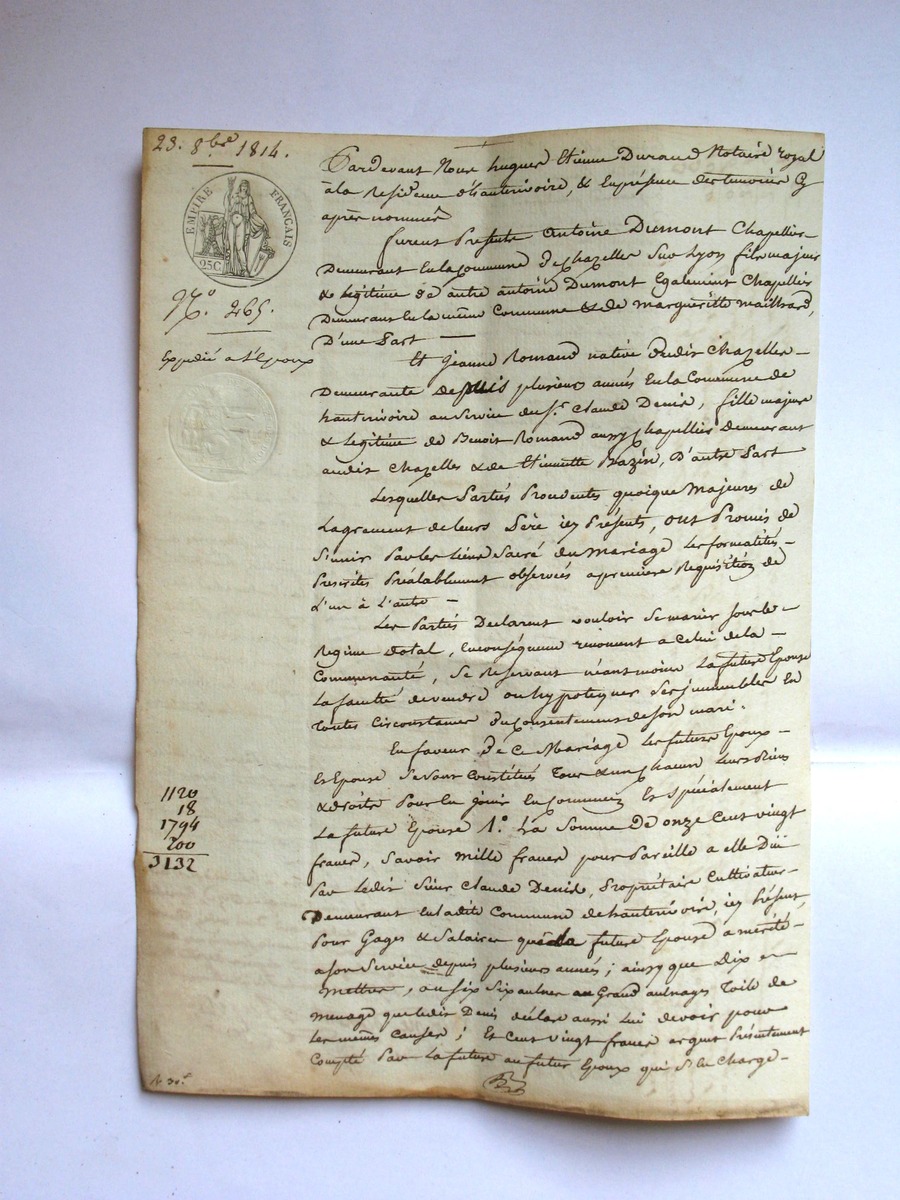 23. 8bre 1814.
EMPIRE FRANÇAIS
25C
N.o 265.
Expedié a l'Epoux
Pardevant Nous hugues Etienne Durand Notaire royal
à la Residence d'hauterivoire, & En présence des temoins Cy
après nommés
furent Présents Antoine Dumont Chapellier
Demeurant En la Commune de Chazelles Sur Lyon fils majeur
& légitime de autre antoine Dumont Egalement Chapellier
Demeurant En la même Commune & de margueritte maillard,
D'une Part —
Et jeanne Romand native dudit Chazelles —
Demeurante depuis plusieurs annés En la Commune de
hauterivoire au Service du Sr. Claude Denis, fille majeure
& légitime de Benoit Romand aussy Chapellier demeurant
audit Chazelles & de Etiennette Bazin, D'autre Part
Lesquelles Partiés Procedentes quoique Majeures de
Lagrement de leurs Père icy Présents, ont Promis de
S'unir Par les liens Sacré du Mariage les formalités —
Prescrites Préalablement observées a premiere Requisition de
L'un à L'autre —
Les Partiés Declarent vouloir Se marier Sous le —
Regime dotal, En conséquence renoncent a Celui de la —
Communauté, Se Reservant néantmoins La future Epouse
La faculté de vendre ou hypotequer Ses jmmeubles En
toutes Circonstances du Consentement de Son mari.
En faveur de Ce Mariage Les futurs Epoux —
Et Epouse Se Sont Constitués Tous & un Chacun Leurs biens
& droits Pour En jouir En Commun Et Spécialement
La future Epouse 1.o La Somme De onze Cent vingt
francs, Savoir Mille francs pour Pareille a elle Düe
Par Ledit Sieur Claude Denis, Propriétaire Cultivateur —
Demeurant En ladite Commune de hauterivoire, icy Présent,
Pour Gages & Salaires que la future Epouse a mérité —
a Son Service depuis plusieurs annés; ainsy que Dix
Mettres, ou Six aulnes au Grand aulnages Toile de
menage que ledit Denis déclare aussi Lui devoir pour
Les mêmes Causes; Et Cent vingt francs argent Présentement
Compté Par La future au futur Epoux qui S'en Charge —
1120
18
1794
200
3132